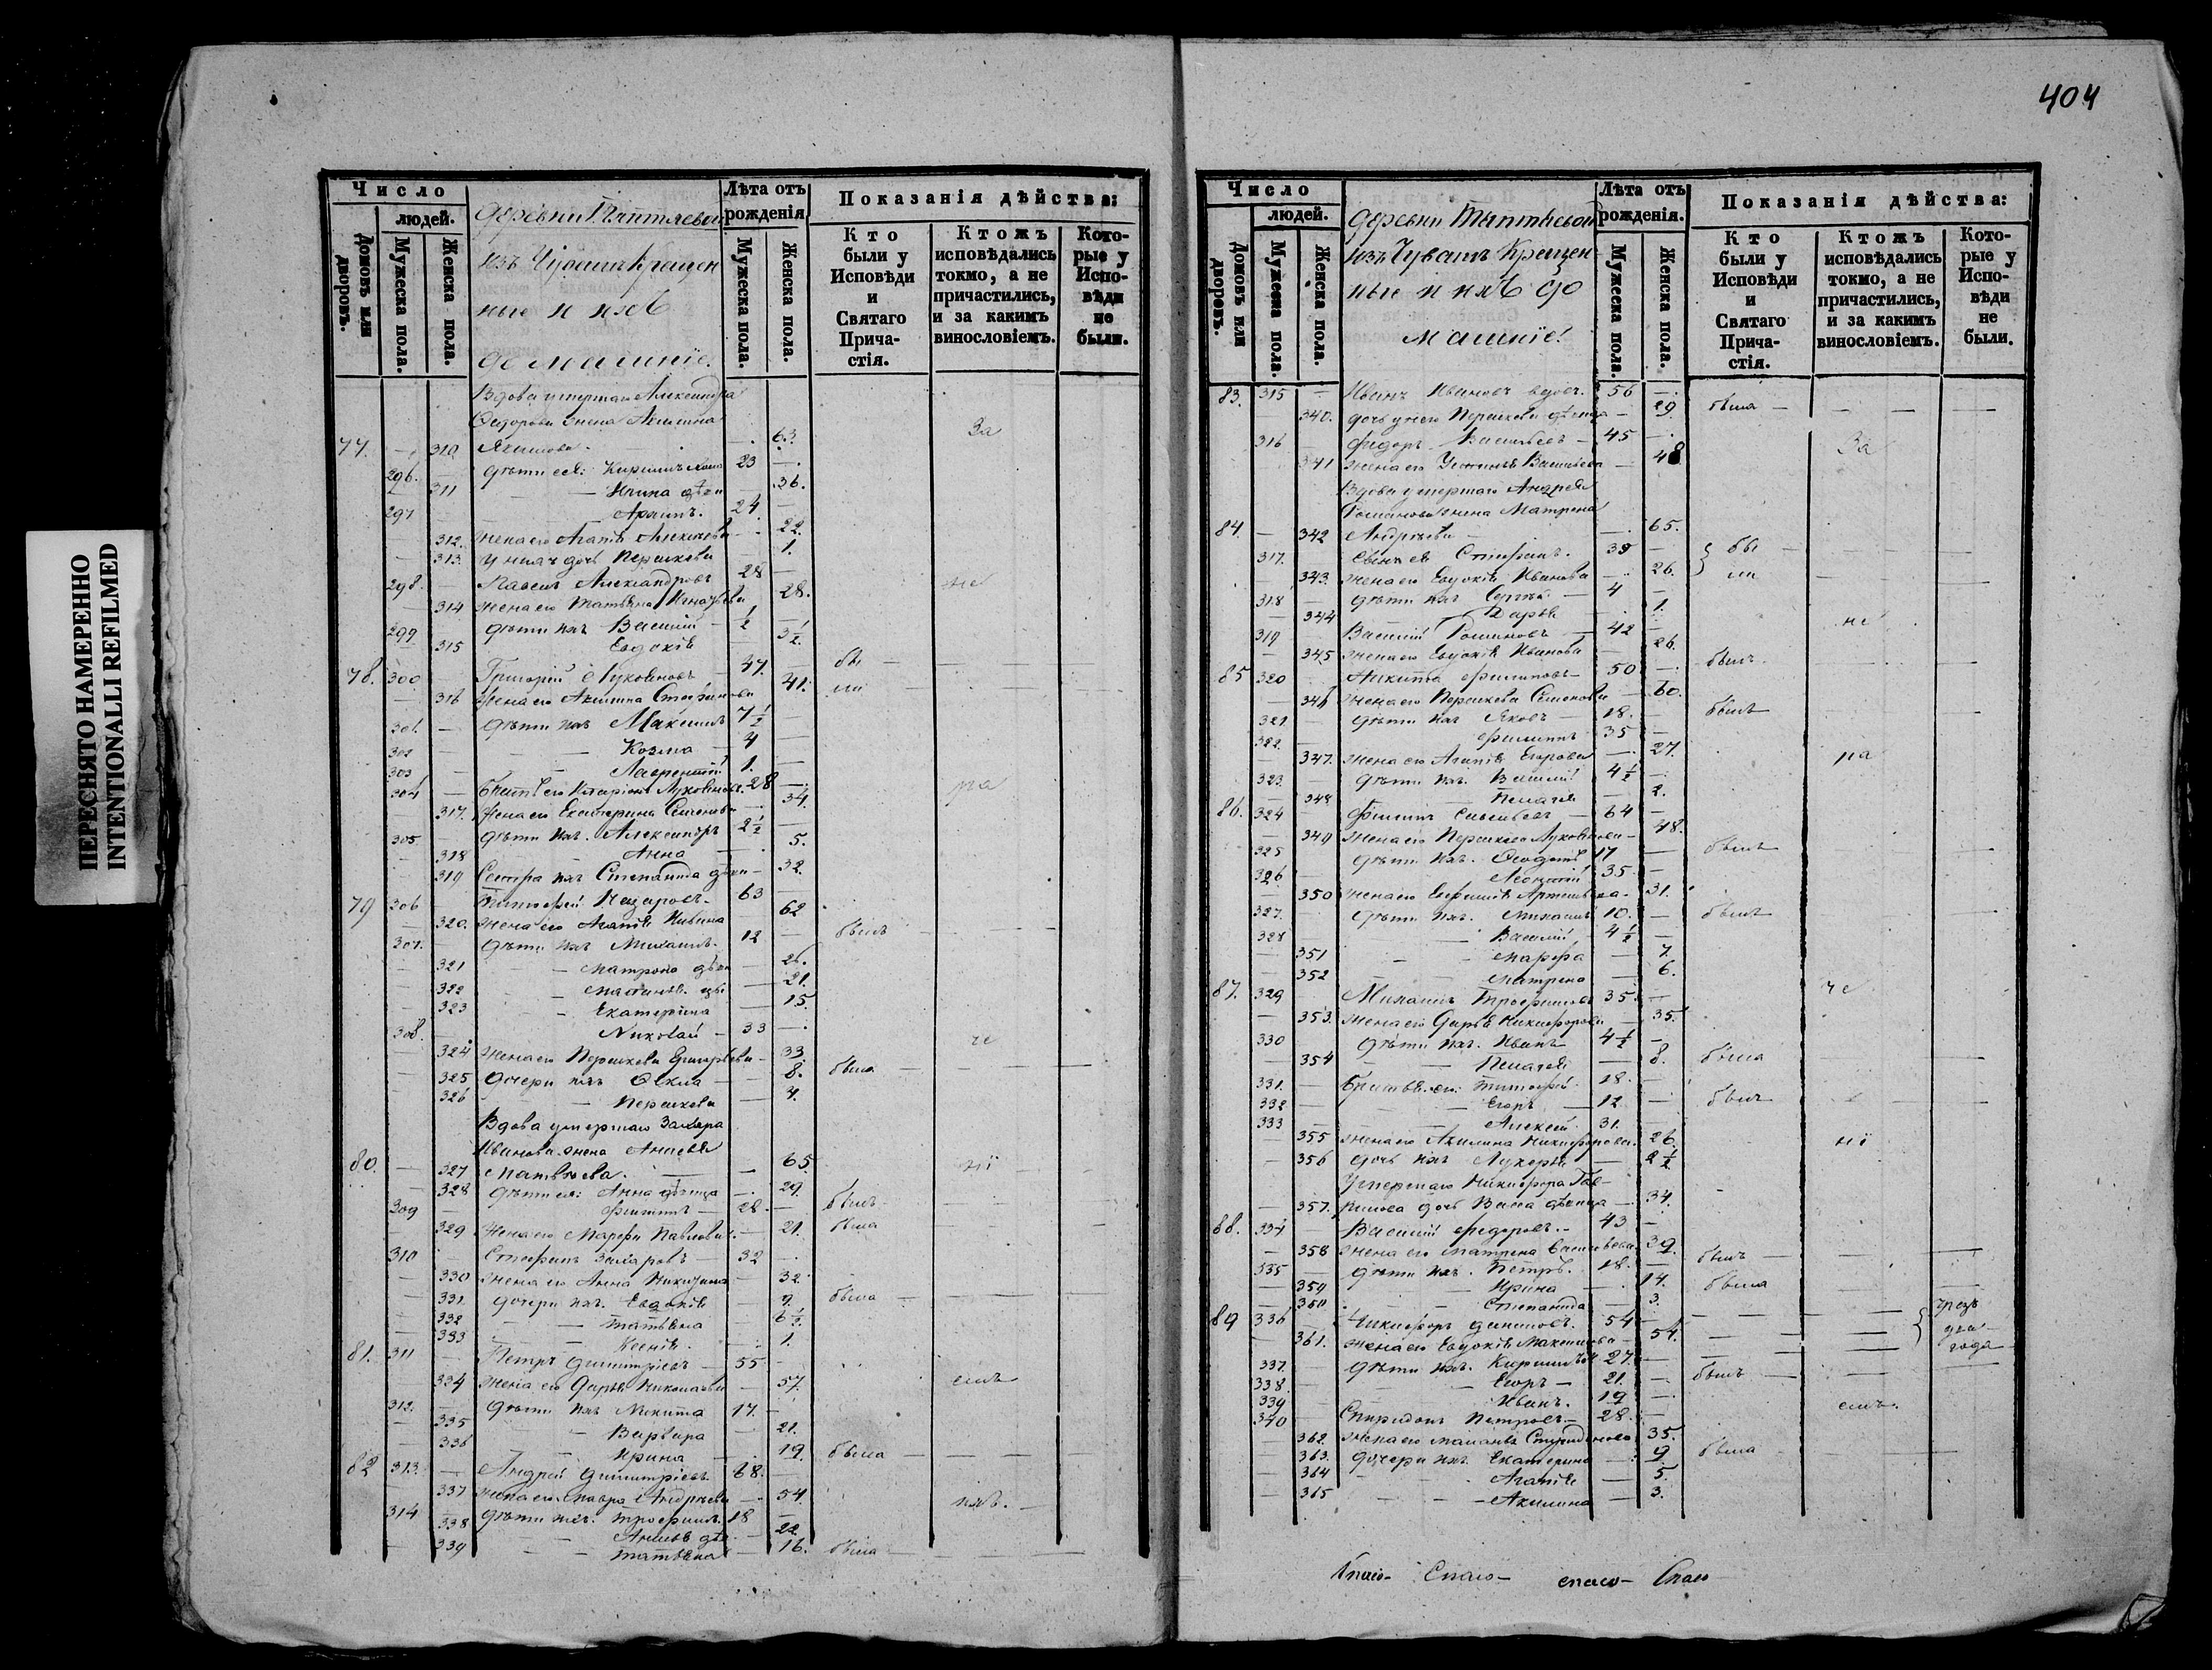 ПЕРЕСНЯТО НАМЕРЕННО
INTENTIONALLI REFILMED
Число
людей.
Домовъ или дворовъ.
Мужеска пола.
Женска пола.
деревни
изъ Крещен
ные и ихъ
домашніе.
Лѣта отъ рожденія
Мужеска пола.
Женска пола.
Показанія дѣйства:
Кто были у Исповѣди и Святаго Прича- стія.
Ктожъ исповѣдались токмо, а не причастились, и за какимъ винословіемъ.
Кото- рые у Испо- вѣди не были.
Вдова умершаго Александра
Ѳедорова жена Акилина
77. 310 63. За
296. дѣти ея: 23
311 Ирина 36.
297 Архипъ. 24
312. жена его Агапія 22.
313. у нихъ дочь Параскева 1.
298. Павелъ Александровъ 28 не
314 жена его Татьяна Игнатьева 28.
299 дѣти ихъ Василій ½
315 Евдокія 3½
78. 300 Григорій Лукояновъ 47. бы
316 жена его Акилина Стефанова 41. ли
301. дѣти ихъ Максимъ 7½
302 Козма 4
303 Лаврентій 1.
304 Братъ его Иларіонъ Лукояновъ 28 ра
317. жена его Екатерина Семенова 34.
305 дѣти ихъ. Александръ 2½
318 Анна 5.
319 Сестра ихъ Степанида 32.
79 306 Тимофей Назаровъ 63
320. жена его Агапія 62
307. дѣти ихъ Михаилъ 12 былъ
321 Матрона 26.
322 21.
323 Екатерина 15.
308. Николай 33 че
324 жена его Параскева 33.
325 дочери ихъ Ѳекла 8. была
326 Параскева 4.
Вдова умершаго Захара
Иванова жена
80. 327 Матвѣева. 65. ні
328 дѣти ея: Анна дѣвица 29.
309 Филиппъ 28 былъ
329 жена его Марфа Павлова 21. была
310 Стефанъ Захаровъ 32
330 жена его Анна 32.
331 дочери ихъ. Евдокія 9. была
332 Татьяна 6½
333 Ксенія 1.
81. 311 Петръ Димитріевъ 55
334 жена его Дарья Николаева 57. емъ
312. дѣти ихъ Никита 17.
335 Варвара 21.
336 Ирина 19. была
82 313. Андрей Димитріевъ 68.
337 жена его Андреева 54. ихъ.
314 дѣти ихъ. Трофимъ. 18
338 22.
339 Татьяна 16. была
404
Число
людей.
Домовъ или дворовъ.
Мужеска пола.
Женска пола.
деревни
изъ Чувашъ Крещен-
ные и ихъ до
машніе.
Лѣта отъ рожденія.
Мужеска пола.
Женска пола.
Показанія дѣйства:
Кто были у Исповѣди и Святаго Прича- стія.
Ктожъ исповѣдались токмо, а не причастились, и за какимъ винословіемъ.
Кото- рые у Испо- вѣди не были.
83. 315 Иванъ Ивановъ вдовъ. 56
340. дочь у него Параскева дѣвица 29. была
316 Федоръ Васильевъ 45 За
341 жена его Устинья Васильева 48
Вдова умершаго Андрея
Романова жена Матрена
84. 342 Андреева 65.
317. сынъ ея Стефанъ. 38 бы
343. жена его Евдокія Иванова 26. ли
318 дѣти ихъ Сергѣй 4
344 Дарья 1.
319 Василій Романовъ 42 не
345 жена его Евдокія Иванова 26.
85 320 Никита Филиповъ 50 былъ
346 жена его Параскева Семенова 60.
321. дѣти ихъ Яковъ 18. былъ
322. Филиппъ 35
347. жена его Агапія Егорова 27. ра
323. дѣти ихъ. Василій 4½
348 Пелагея 2.
86. 324 Филипъ Савельевъ 64
349 жена его Параскева Лукоянова 48.
325 дѣти ихъ. Ѳеодотъ 17 былъ
326 Леонтій 35
350 жена его Евфимія Артемьева 31.
327. дѣти ихъ. Михаилъ 10. былъ
328 Василій 4½
351 Марфа 7.
352 Матрена 6.
87. 329 Михаилъ Трофимовъ 35. че
353. жена его Дарья Никифорова 35.
330 дѣти ихъ. Иванъ 4½
354 Пелагея 8. была
331. Братья его: Тимофей 18.
332 Егоръ 12 былъ
333 Алексей 31.
355 жена его Акилина Никифорова 26. ні
356 дочь ихъ Лукерья 2½
Умершаго Никифора Гав-
357. рилова дочь Васса дѣвица 34.
88. 334 Василій Федоровъ. 43
358 жена его Матрена Васильева 39.
335 дѣти ихъ. Петръ. 18. былъ
359 Ирина 14. была
360 Степанида 3.
89 336 Никифоръ Даниловъ. 54 чрезъ
361. жена его Евдокія Максимова 54. два
337. дѣти ихъ. Кириллъ 27. года
338. Егоръ 21. былъ
339 Иванъ. 19
340 Спиридонъ Петровъ 28. емъ.
362. жена его Спиридонова 35.
363. дочери ихъ Екатерина 9 была
364 Агапія 5.
365 Акилина 3.